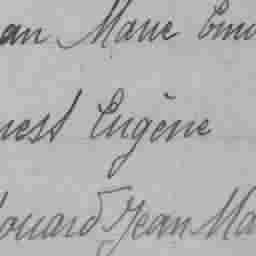 an Marie Em
nest Eugène
douard Jean Ma